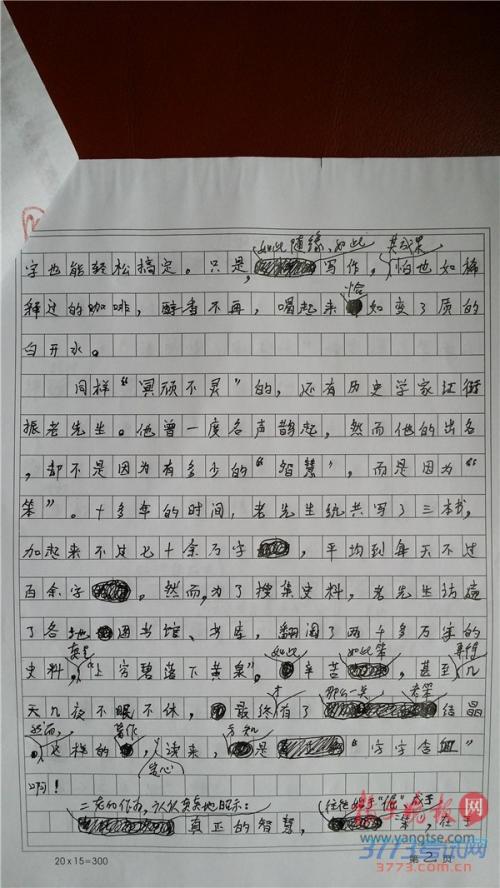 如此随缘、如此 其成果
字也能轻松搞定。只是,写作,怕也如稀
释过的咖啡,醇香不再,喝起来 如变了质的
恰
白开水。
同样“冥顽不灵”的,还有历史学家江衍
振老先生。他曾一度名声鹊起,然而他的出名
,却不是因为有多少的“智慧”,而是因为“
笨”。十多年的时间,老先生统共写了三本书,
加起来不过七十余万字,平均到每天不过
百余字。然而,为了搜集史料,老先生访遍
了各地图书馆、书库,翻阅了两千多万字的
如此 如此笨
史料,“上穷碧落下黄泉”。辛苦,甚至几
才 那么一点
天几夜不眠不休,最终有了结晶
然而, 著作 方知
这样的,人读来,是“字字含血”
啊!
二老的作为, 地昭示: 往往始于 成于
真正的智慧, “笨”,在
20×15=300
第2页
www.yangtse.com
3773考试网
3773.com